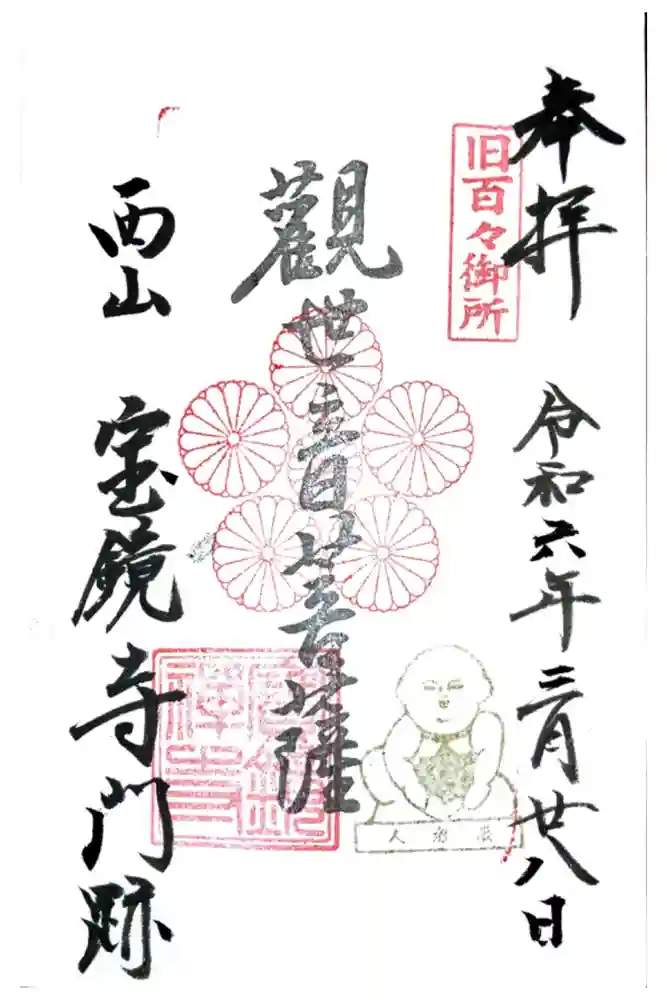 奉拝
令和六年三月廿八日
旧百々御所
觀世音菩薩
西山 宝鏡寺門跡